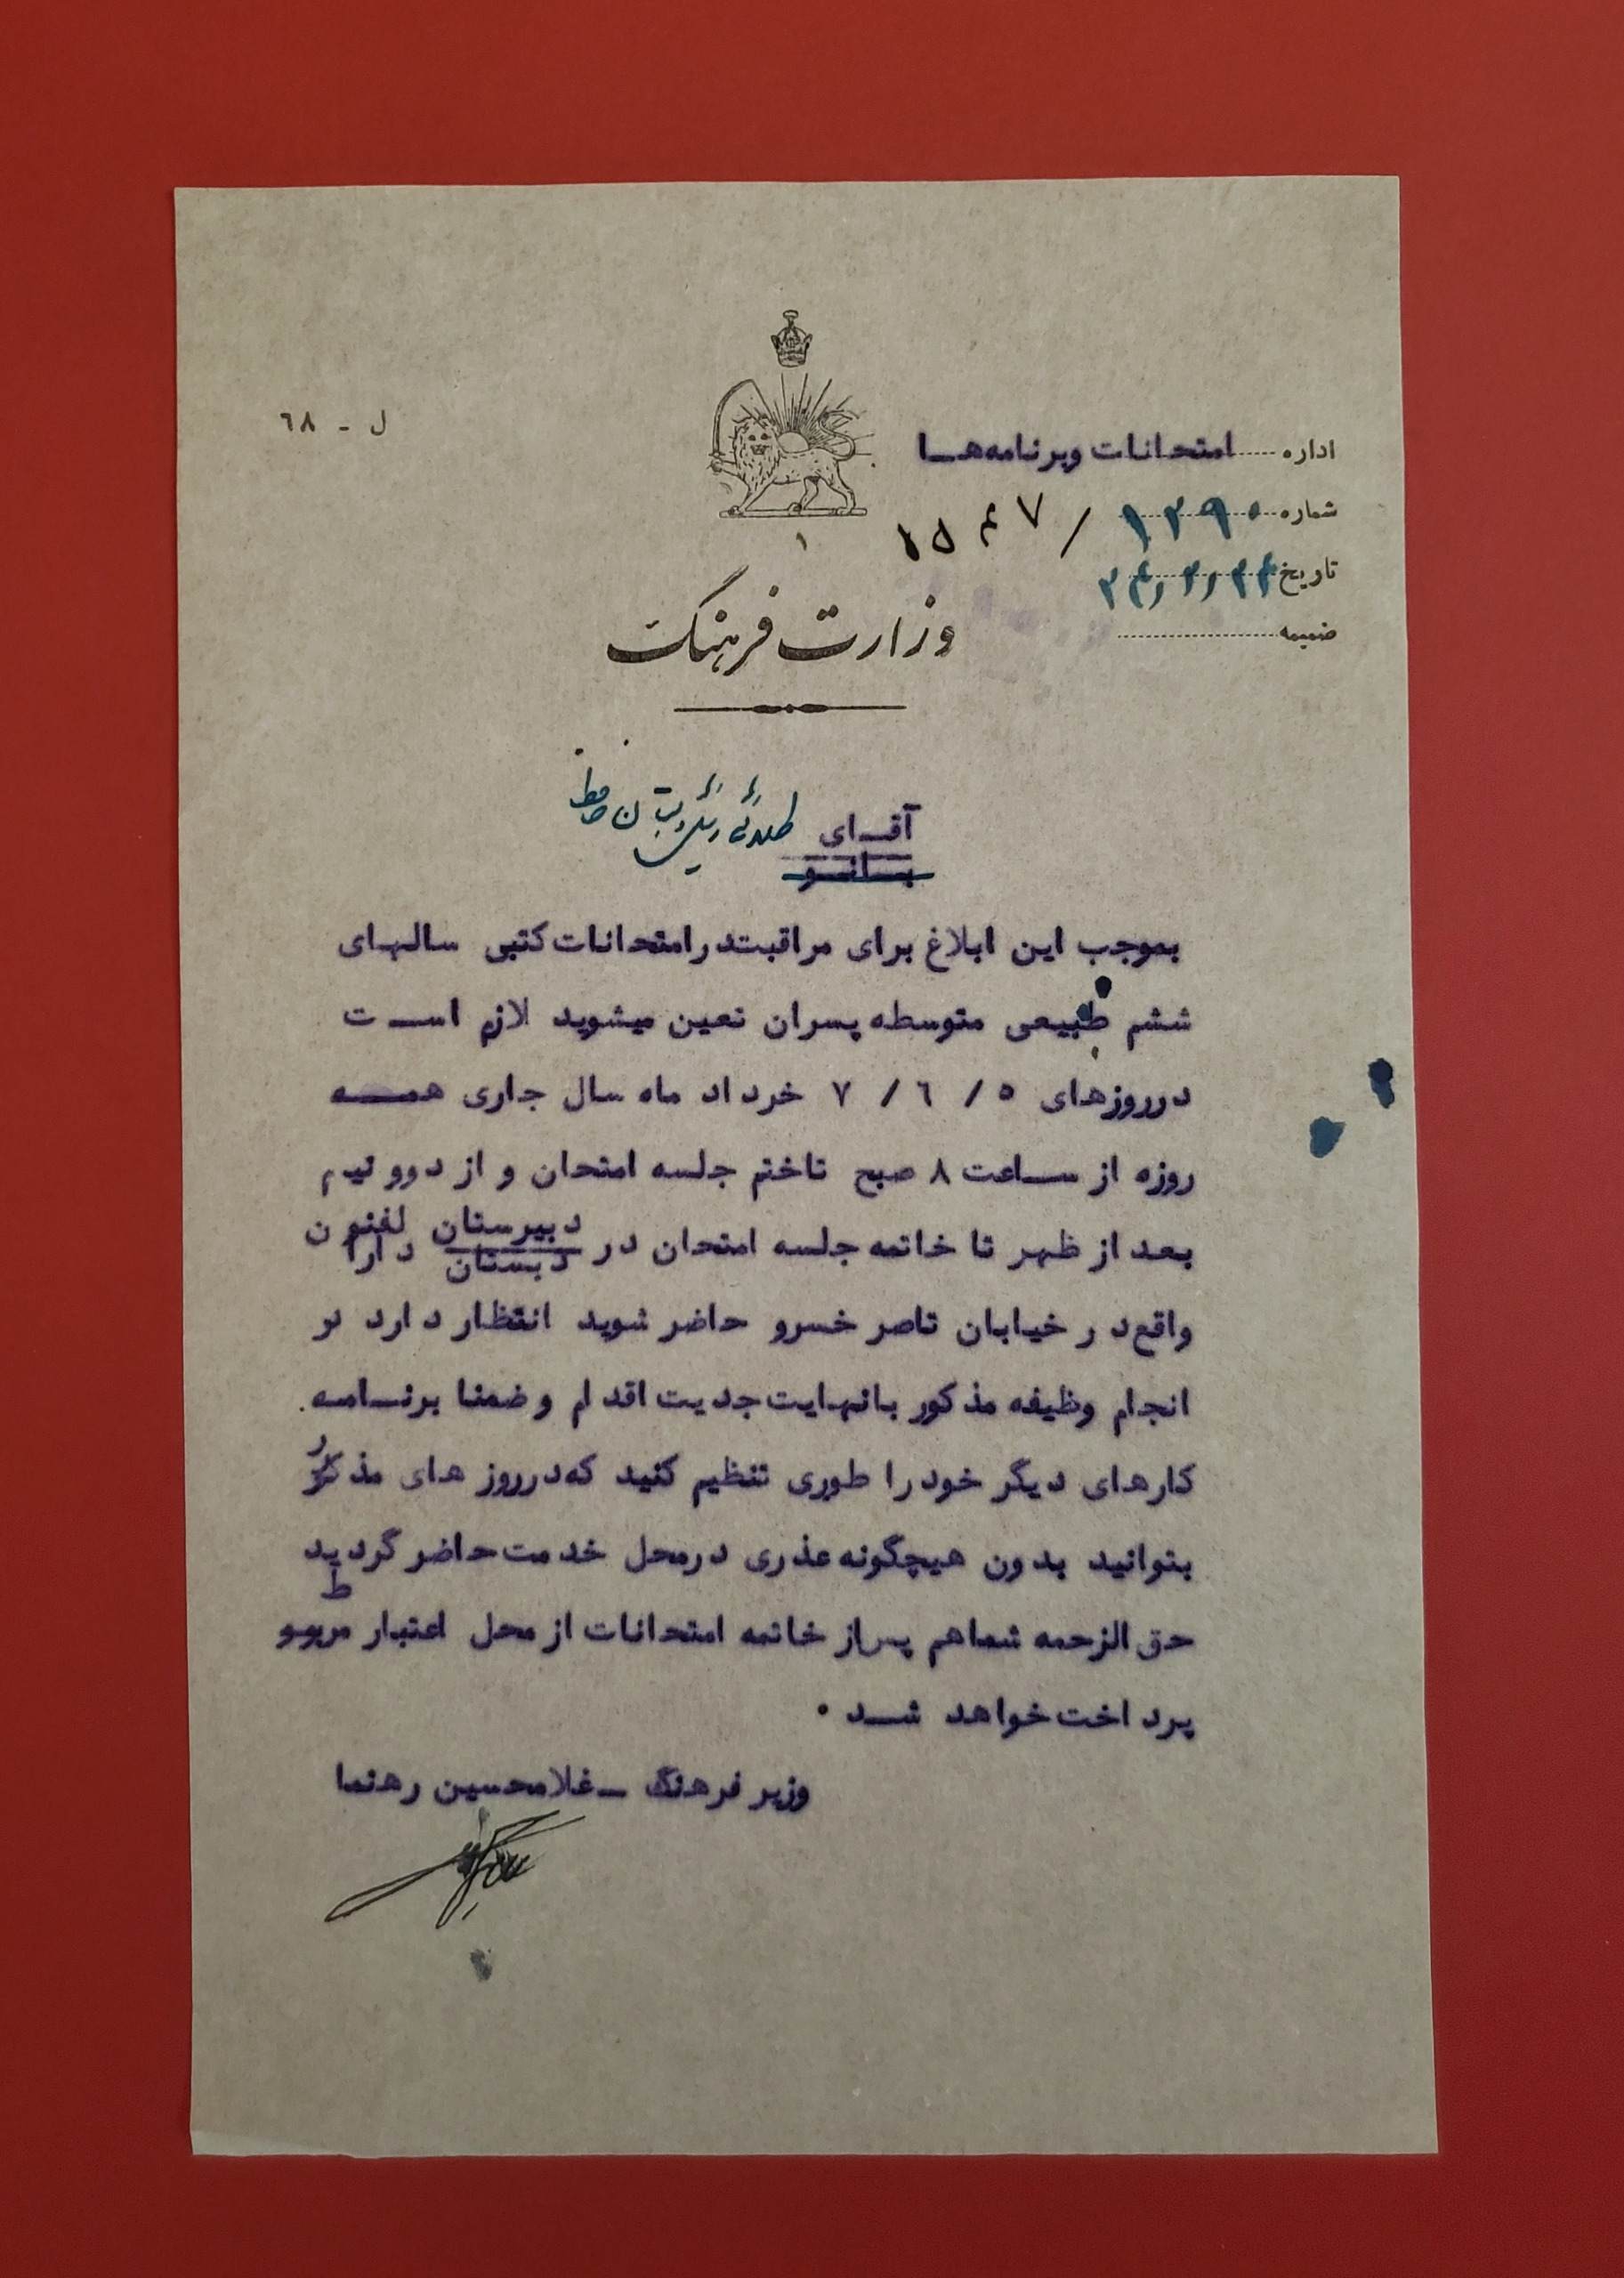 ل - ٦٨
اداره امتحانات وبرنامه‌هـا
شماره ۱۲۹۰ /
تاریخ
ضمیمه
وزارت فرهنگ
آقـای
دبستان حافظ
بـانـو
بموجب این ابلاغ برای مراقبتدرامتحانات کتبی سالهای
ششم طبیعی متوسطه پسران تعین میشوید لازم اسـت
درروزهای ٥ / ٦ / ٧ خرداد ماه سال جاری همـه
روزه از سـاعت ٨ صبح تاختم جلسه امتحان و از دوو نیم
بعد از ظهر تا خاتمه جلسه امتحان در دبیرستان
دبستان دارا
واقع‌در خیابان ناصر خسرو حاضر شوید انتظار دارد در
انجام وظیفه مذکور بانهایت جدیت اقدام و ضمنا برنـامه
کارهای دیگر خودرا طوری تنظیم کنید که‌درروز های مذکور
بتوانید بدون هیچگونه عذری درمحل خدمت حاضر گردید
حق الزحمه شماهم پس‌از خاتمه امتحانات از محل اعتبار مربوط
پرداخت خواهد شـد ۰
وزیر فرهنگ ـ غلامحسین رهنما